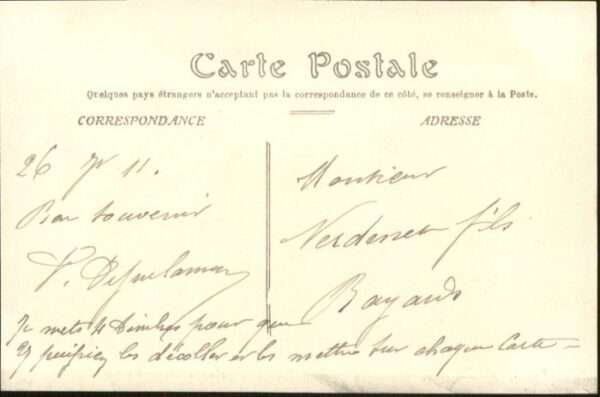 Carte Postale
Quelques pays étrangers n'acceptant pas la correspondance de ce côté, se renseigner à la Poste.
CORRESPONDANCE
26 11.
Bon souvenir
ADRESSE
Monsieur
fils
Bayards
Je mets 4 timbres pour que
les décoller et les mettre sur chaque Carte –